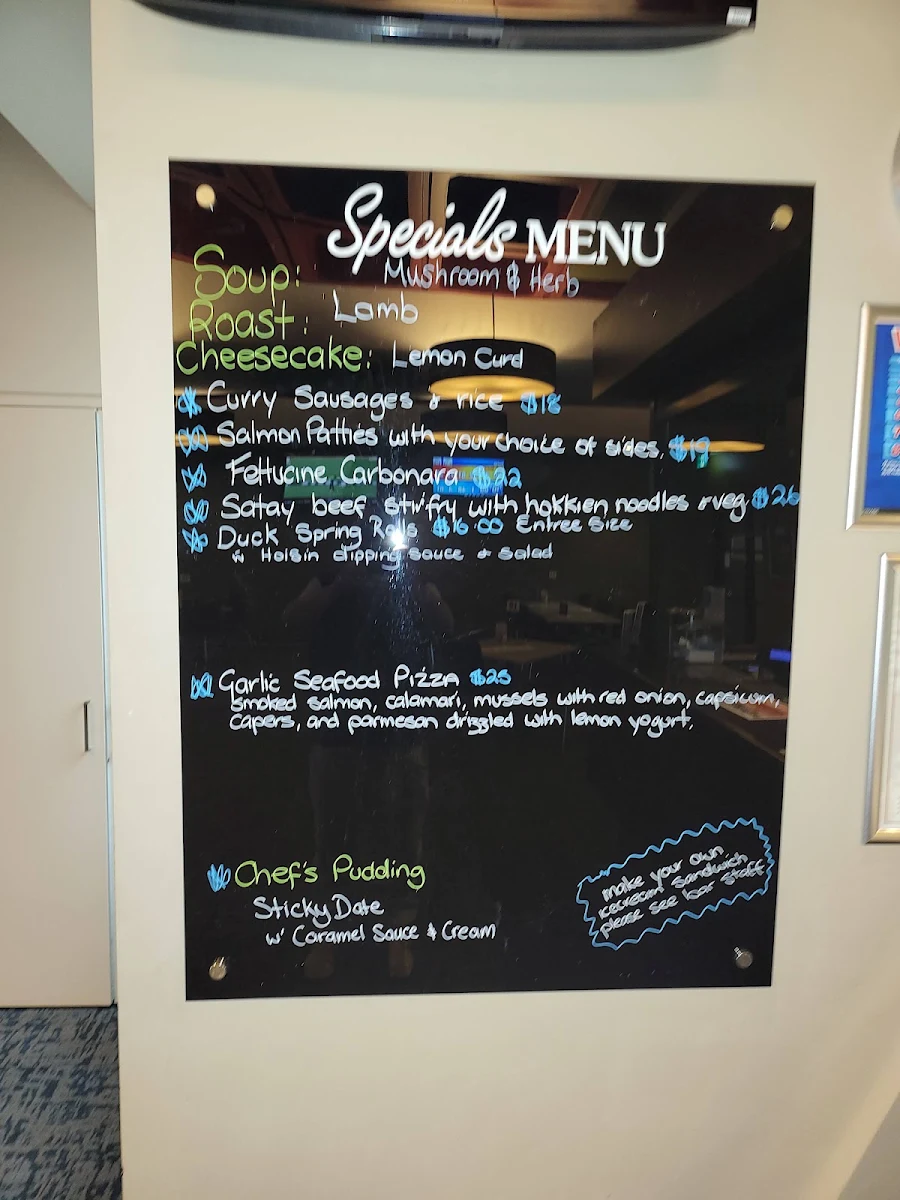 Specials MENU
Soup: Mushroom & Herb
Roast: Lamb
Cheesecake: Lemon Curd
Curry Sausages & rice $18
Salmon Patties with your choice of sides. $19
Fettucine Carbonara $22
Satay beef stirfry with hokkien noodles & veg $26
Duck Spring Rolls $16.00 Entree Size
w Hoisin dipping sauce & Salad
Garlic Seafood Pizza $25
smoked salmon, calamari, mussels with red onion, capsicum,
capers, and parmesan drizzled with lemon yogurt.
Chef's Pudding
Sticky Date
w' Caramel Sauce & Cream
make your own
icecream sandwich
please see bar staff